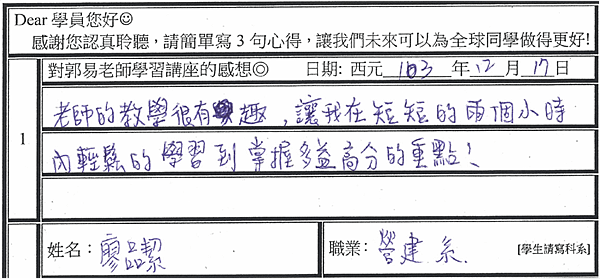 Dear 學員您好☺
感謝您認真聆聽，請簡單寫3句心得，讓我們未來可以為全球同學做得更好!
對郭易老師學習講座的感想◎ 日期: 西元 103 年 12 月 17 日
1
老師的教學很有趣，讓我在短短的兩個小時
內輕鬆的學習到掌握多益高分的重點！
姓名：廖品潔 職業：營建系. [學生請寫科系]